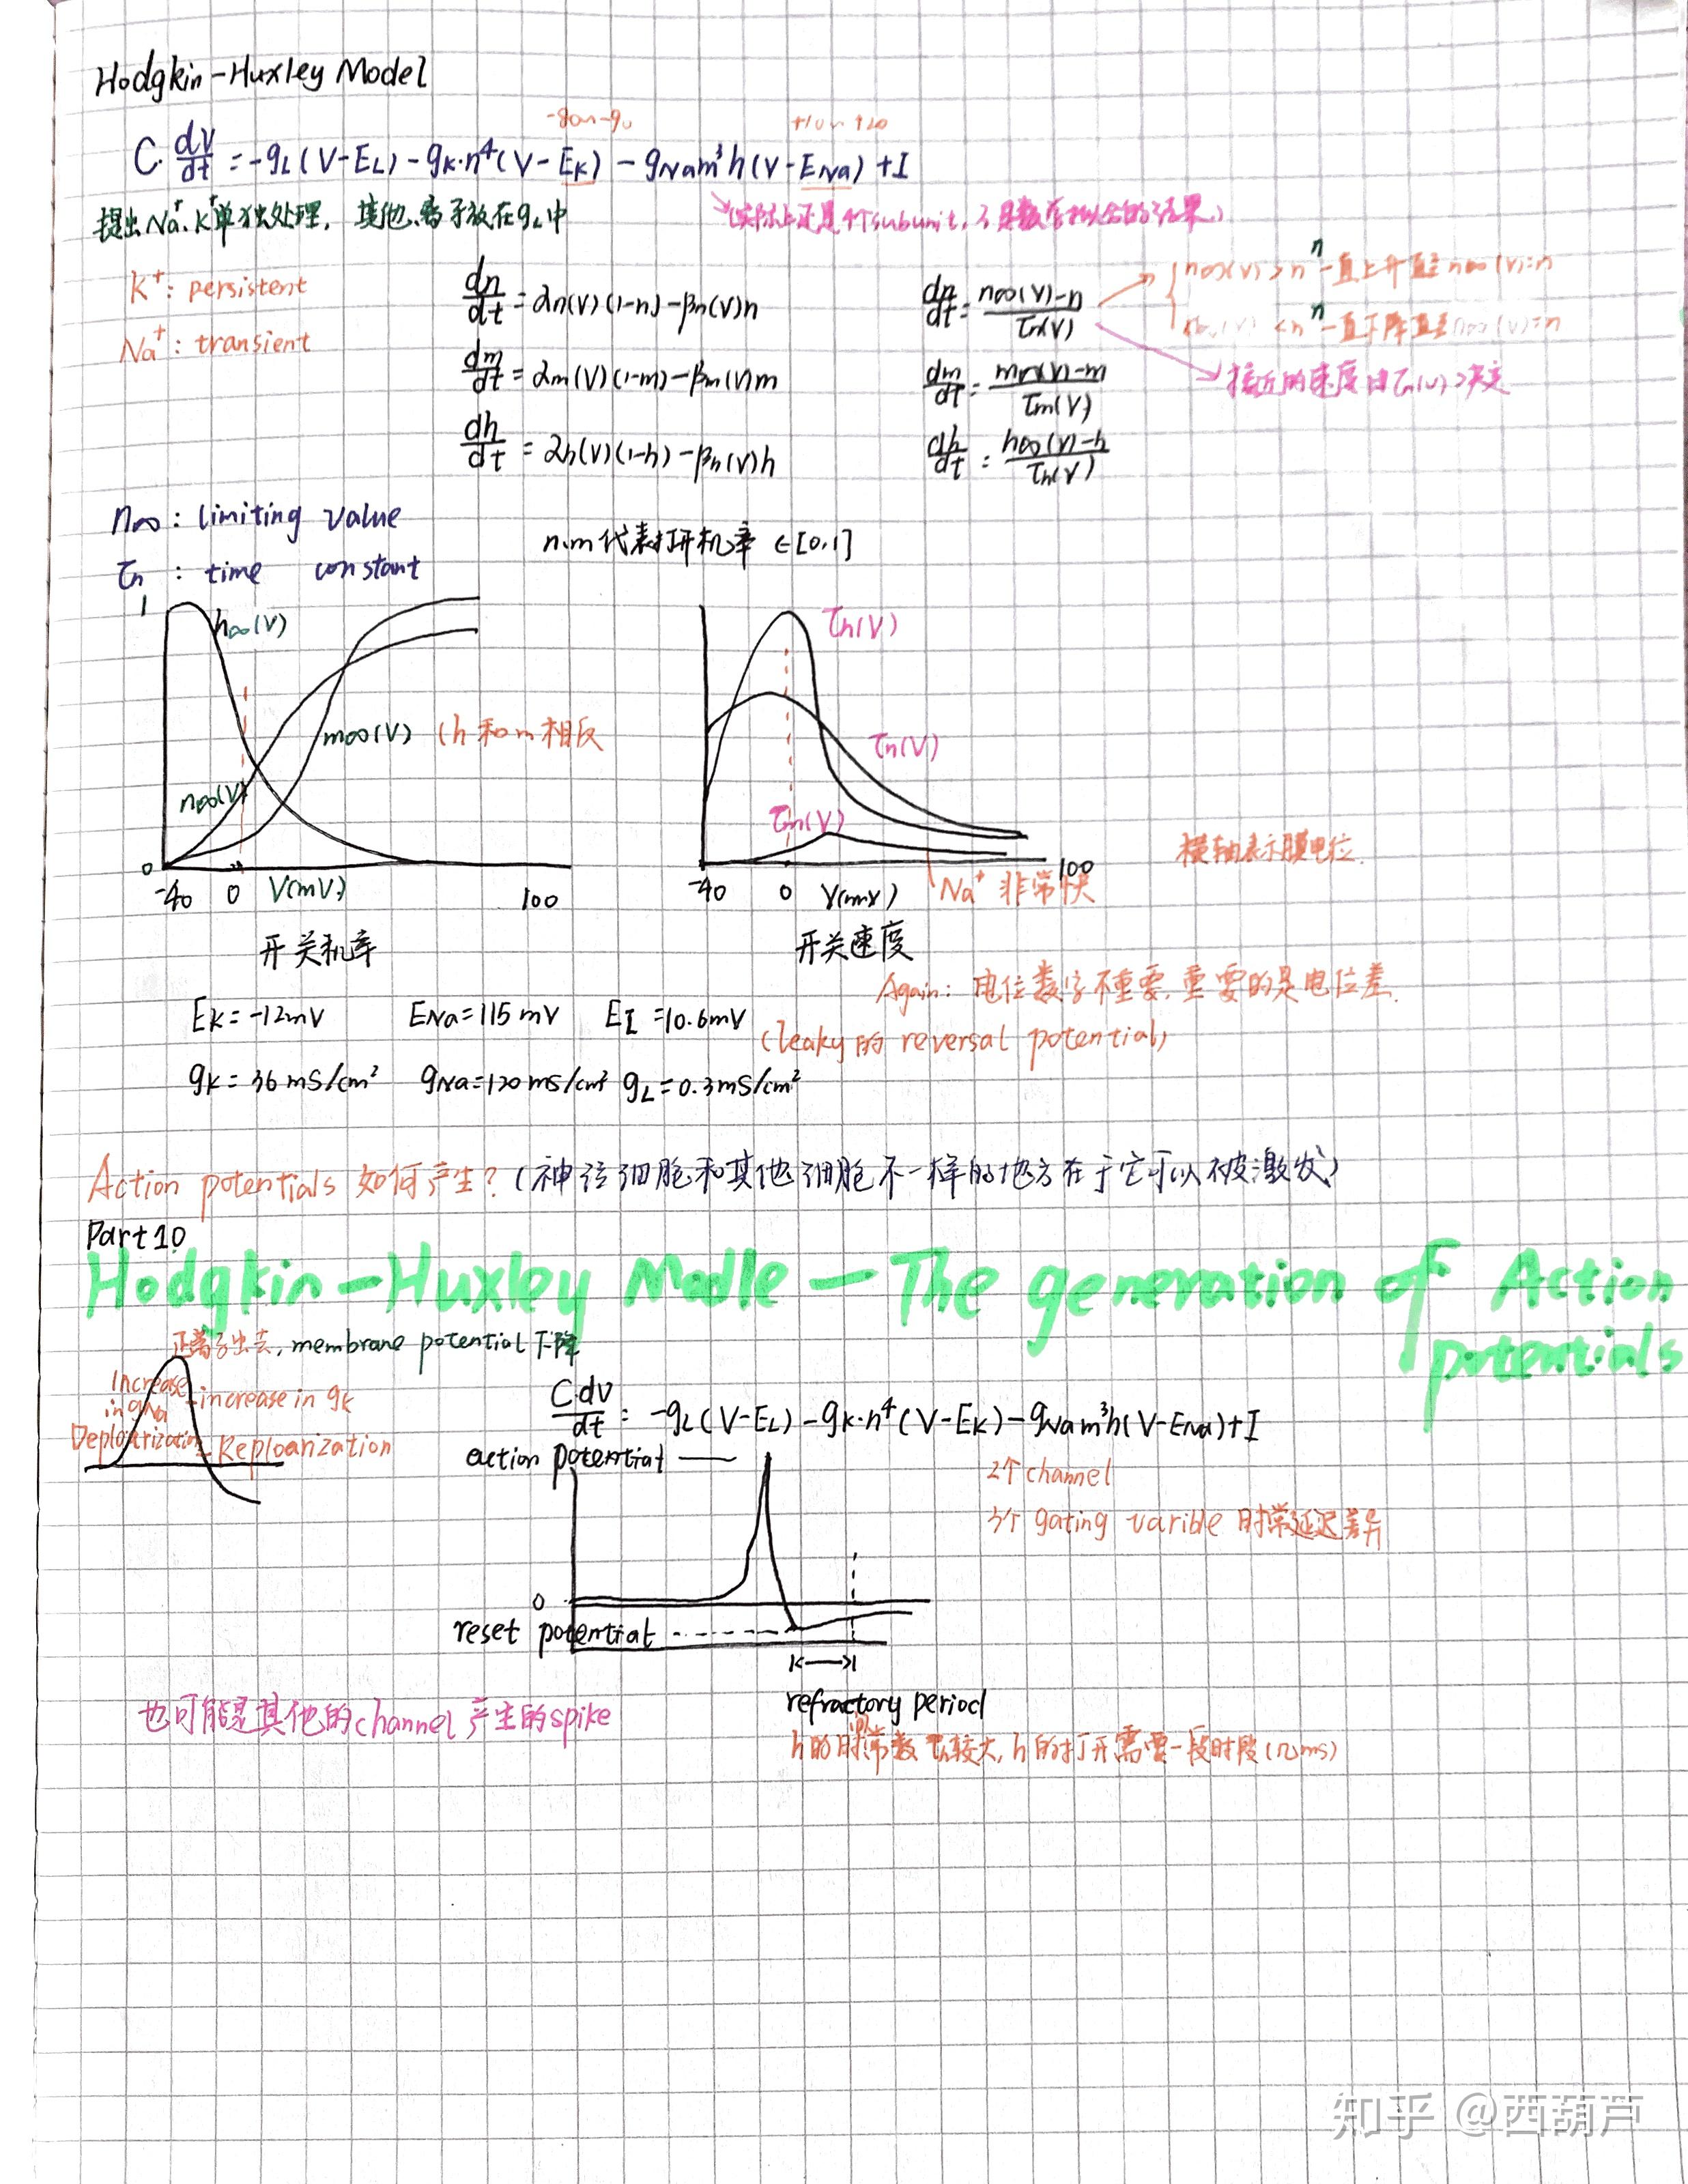 Hodgkin-Huxley Model
-80~-90 +10~120
C·dV/dt = -gL(V-EL) - gK·n⁴(V-EK) - gNam³h(V-ENa) +I
提出Na⁺、K⁺单独处理, 其他离子放在gL中
(实际上还是4个subunit, 是数学拟合的结果)
K⁺: persistent
Na⁺: transient
dn/dt = αn(V)(1-n) - βn(V)n
dm/dt = αm(V)(1-m) - βm(V)m
dh/dt = αh(V)(1-h) - βh(V)h
dn/dt = n∞(V)-n / τn(V)
dm/dt = m∞(V)-m / τm(V)
dh/dt = h∞(V)-h / τh(V)
n∞(V) > n n一直上升直至n∞(V)=n
n∞(V) < n n一直下降直至n∞(V)=n
接近的速度由τn(V)决定
n∞: limiting value
τn: time constant
n,m代表打开机率 ∈[0,1]
1
h∞(V)
m∞(V) (h和m相反
n∞(V)
0
-40 0 V(mV) 100
开关机率
τh(V)
τn(V)
τm(V)
-40 0 V(mV) 100
Na⁺ 非常快
横轴表示膜电位.
开关速度
Again: 电位数字不重要, 重要的是电位差.
EK = -12mV ENa = 115mV EI = 10.6mV
(leaky的 reversal potential)
gK = 36mS/cm² gNa = 120mS/cm² gL = 0.3mS/cm²
Action potentials 如何产生? (神经细胞和其他细胞不一样的地方在于它可以被激发)
Part10
Hodgkin-Huxley Modle — The generation of Action
potentials
正离子出去, membrane potential 下降
Increase in gNa
increase in gk
Deploarization
Reploarization
Cdv/dt = -gL(V-EL) - gK·n⁴(V-EK) - gNam³h(V-ENa)+I
action potential
2个channel
3个 gating varible 时常延迟差异
0
reset potential
refractory period
也可能是其他的channel产生的spike
h的时常数τh较大, h的打开需要一段时段(几ms)
知乎 @西葫芦